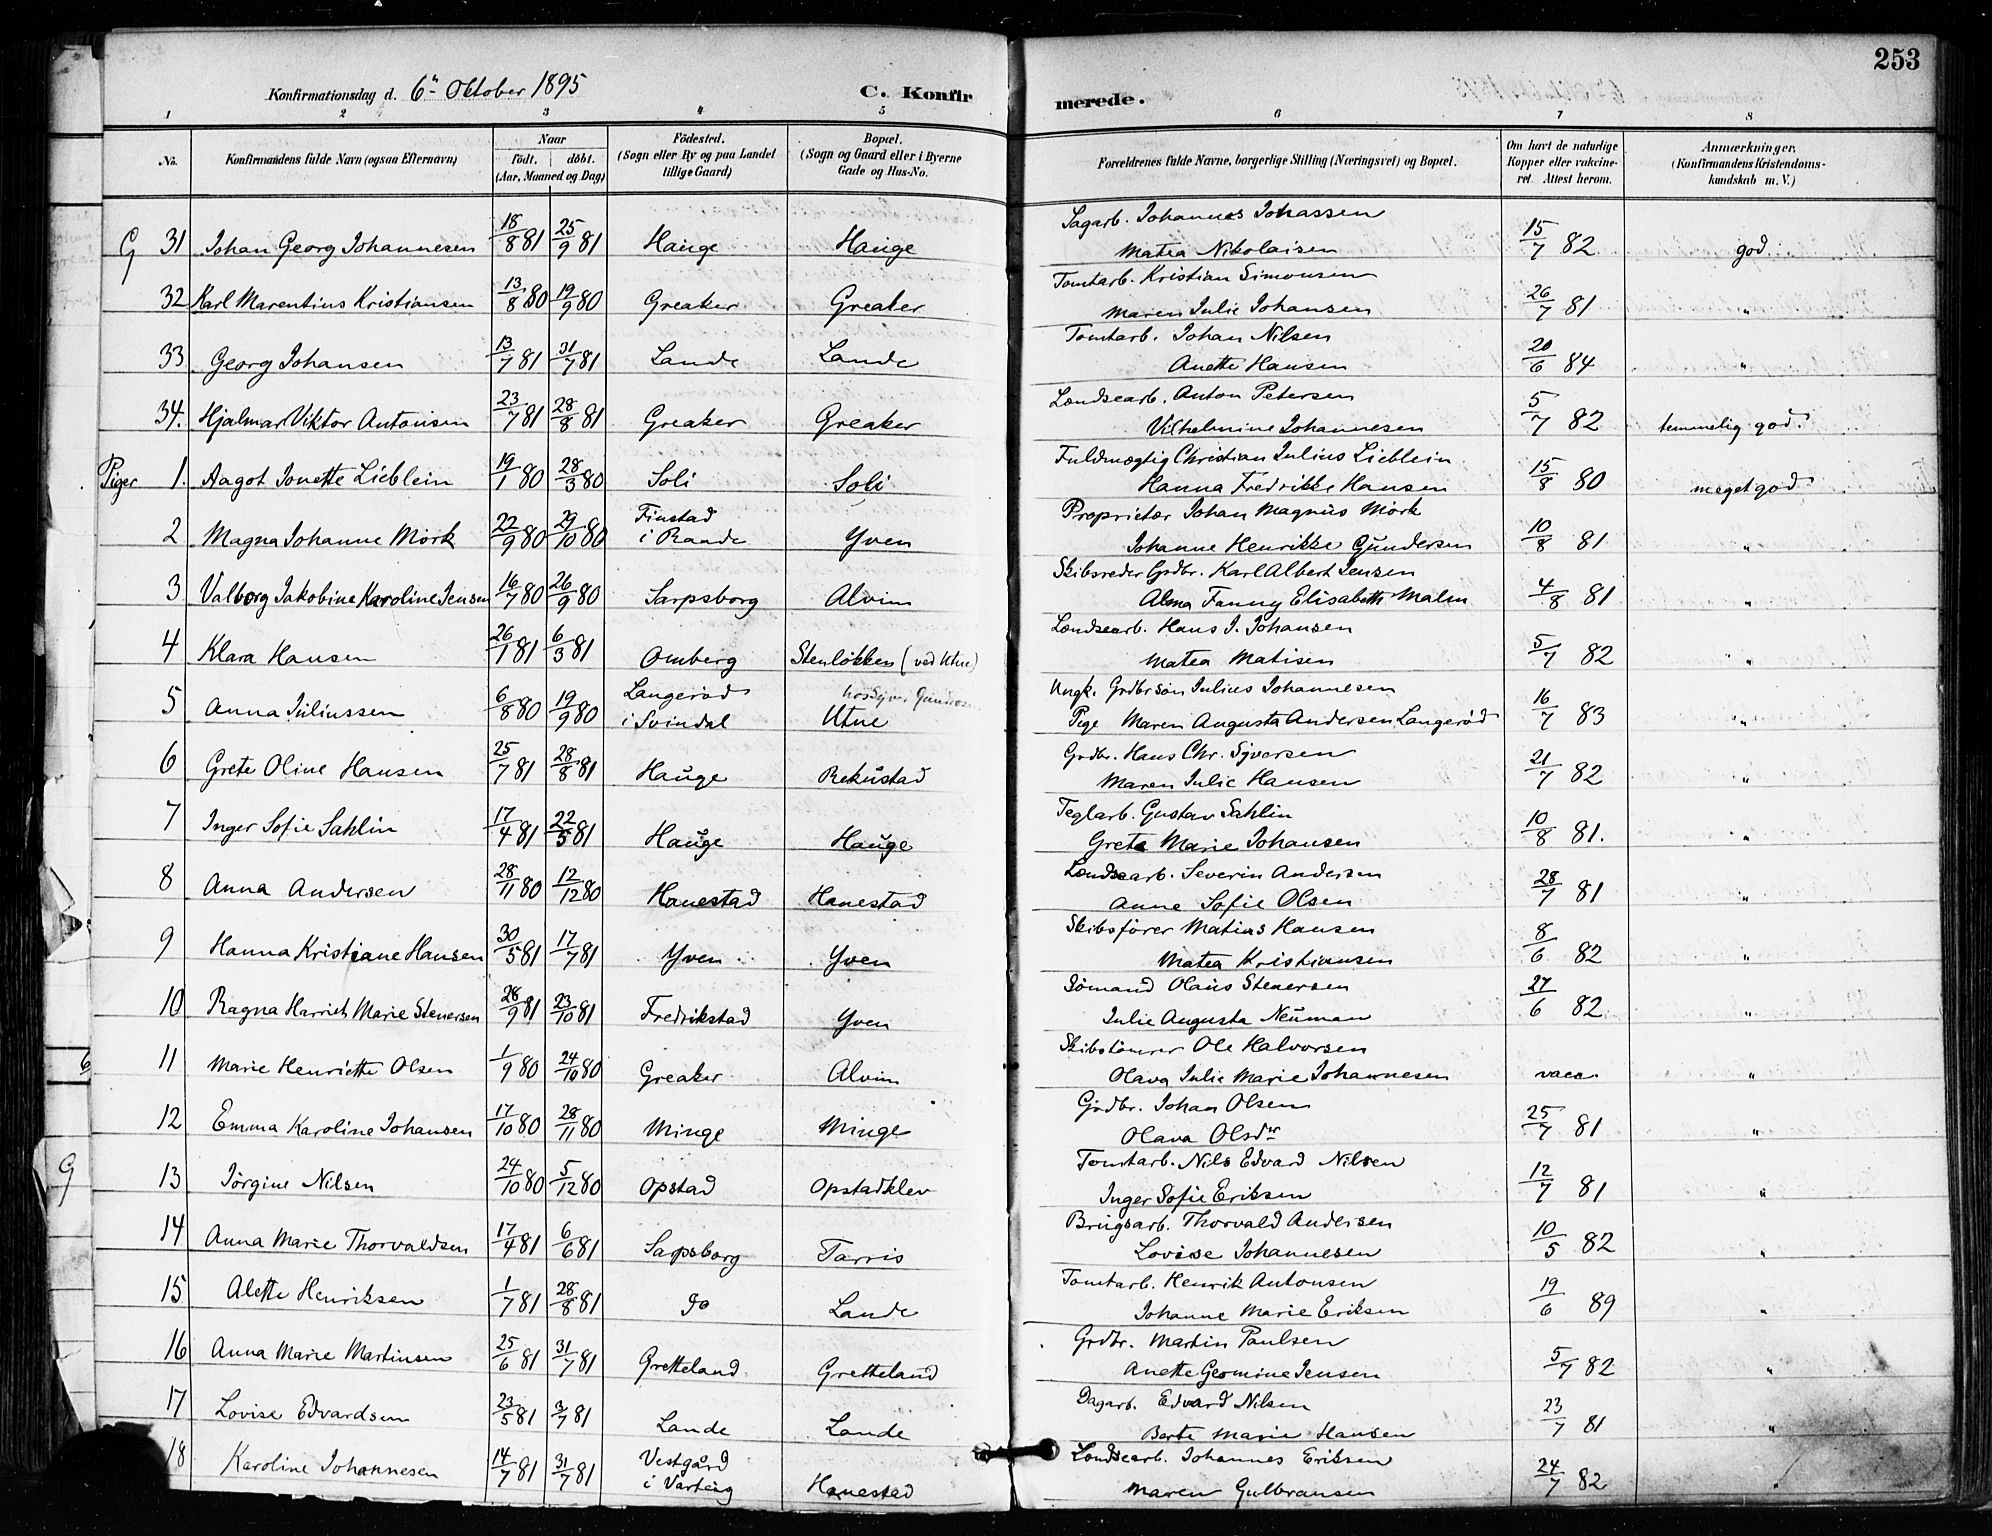 253
Konfirmationsdag d. 6te Oktober 1895 C. Konfirmerede.
1 2 3 4 5 6 7 8
No. Konfirmandens fulde Navn (ogsaa Efternavn) Naar født. døbt. (Aar, Maaned og Dag) Födested. (Sogn eller By og paa Landet tillige Gaard) Bopæl. (Sogn og Gaard eller i Byerne Gade og Hus-No. Forældrenes fulde Navne, borgerlige Stilling (Næringsvei) og Bopæl. Om havt de naturlige Kopper eller vaccineret. Attest herom. Anmærkninger. (Konfirmandens Kristendomskundskab m. V.)
G 31 Johan Georg Johannesen 18/8 81 25/9 81 Hauge Hauge Sagarb. Johannes Johassen
Matea Nikolaisen 15/7 82 god
32 Karl Marentius Kristiansen 13/8 80 19/9 80 Greaker Greaker Tomtarb. Kristian Simonsen
Maren Julie Johansen 26/7 81 "
33 Georg Johansen 13/7 81 31/7 81 Lande Lande Tomtarb. Johan Nilsen
Anette Hansen 20/6 84 "
34. Hjalmar Viktor Antonisen 23/7 81 28/8 81 Greaker Greaker Lændsearb. Anton Petersen
Vilhelmine Johannesen 5/7 82 temmelig god.
Piger 1. Aagot Jonette Lieblein 19/1 80 28/3 80 Soli Soli Fuldmægtig Christian Julius Lieblein
Hanna Fredrikke Hansen 15/8 80 meget god
2 Magna Johanne Mörk 22/9 80 29/10 80 Finstad i Raade Yven Proprietær Johan Magnus Mörk
Johanne Henrikke Gundersen 10/8 81 "
3 Valborg Jakobine Karoline Jensen 16/7 80 26/9 80 Sarpsborg Alvim Skibsreder Grdbr. Karl Albert Jensen
Alma Fanny Elisabeth Malm 4/8 81 "
4 Klara Hansen 26/1 81 6/3 81 Omberg Stenlökken (ved Utne) Lændsearb. Hans J. Johansen
Matea Matisen 5/7 82 "
5 Anna Juliussen 6/8 80 19/9 80 Langeröd i Svindal hos Syver Utne Ungk. Grdbrsön Julius Johannesen
Pige Maren Augusta Andersen Langeröd 16/7 83 "
6 Grete Oline Hansen 25/7 81 28/8 81 Hauge Rekustad Grdbr. Hans Chr. Syversen
Maren Julie Hansen 21/7 82 "
7 Inger Sofie Sahlin 17/4 81 22/5 81 Hauge Hauge Teglarb. Gustav Sahlin
Grete Marie Johansen 10/8 81. "
8 Anna Andersen 28/11 80 12/12 80 Hanestad Hanestad Lændsearb. Severin Andersen
Anne Sofie Olsen 28/7 81 "
9 Hanna Kristiane Hansen 30/5 81 17/7 81 Yven Yven Skibsförer Matias Hansen
Matea Kristiansen 8/6 82 "
10 Ragna Harriet Marie Stenersen 28/9 81 23/10 81 Fredrikstad Yven Sömand Olaus Stenersen
Julie Augusta Neuman 27/6 82 "
11 Marie Henriette Olsen 1/9 80 24/10 80 Greaker Alvim Skibstömrer Ole Halvorsen
Olava Julie Marie Johannesen vacc. "
12 Emma Karoline Johansen 17/10 80 28/11 80 Minge Minge Grdbr. Johan Olsen
Olava Olsdtr 25/7 81 "
13 Jörgine Nilsen 24/10 80 5/12 80 Opstad Opstadklev Tomtarb. Nils Edvard Nilsen
Inger Sofie Eriksen 12/7 81 "
14 Anna Marie Thorvaldsen 17/4 81 6/6 81 Sarpsborg Tarris Brugsarb. Thorvald Andersen
Lovise Johannesen 10/5 82 "
15 Alette Henriksen 1/7 81 28/8 81 do Lande Tomtarb. Henrik Antonsen
Johanne Marie Eriksen 19/6 89 "
16 Anna Marie Martinsen 25/6 81 31/7 81 Gretteland Gretteland Grdbr. Martin Paulsen
Anette Geomine Jensen 5/7 82 "
17 Lovise Edvardsen 23/5 81 3/7 81 Lande Lande Dagarb. Edvard Nilsen
Berte Marie Hansen 23/7 81 "
18 Karoline Johannesen 14/7 81 31/7 81 Vestgård i Varteig Hanestad Lændsearb. Johannes Eriksen
Maren Gulbransen 24/7 82 "
6
G